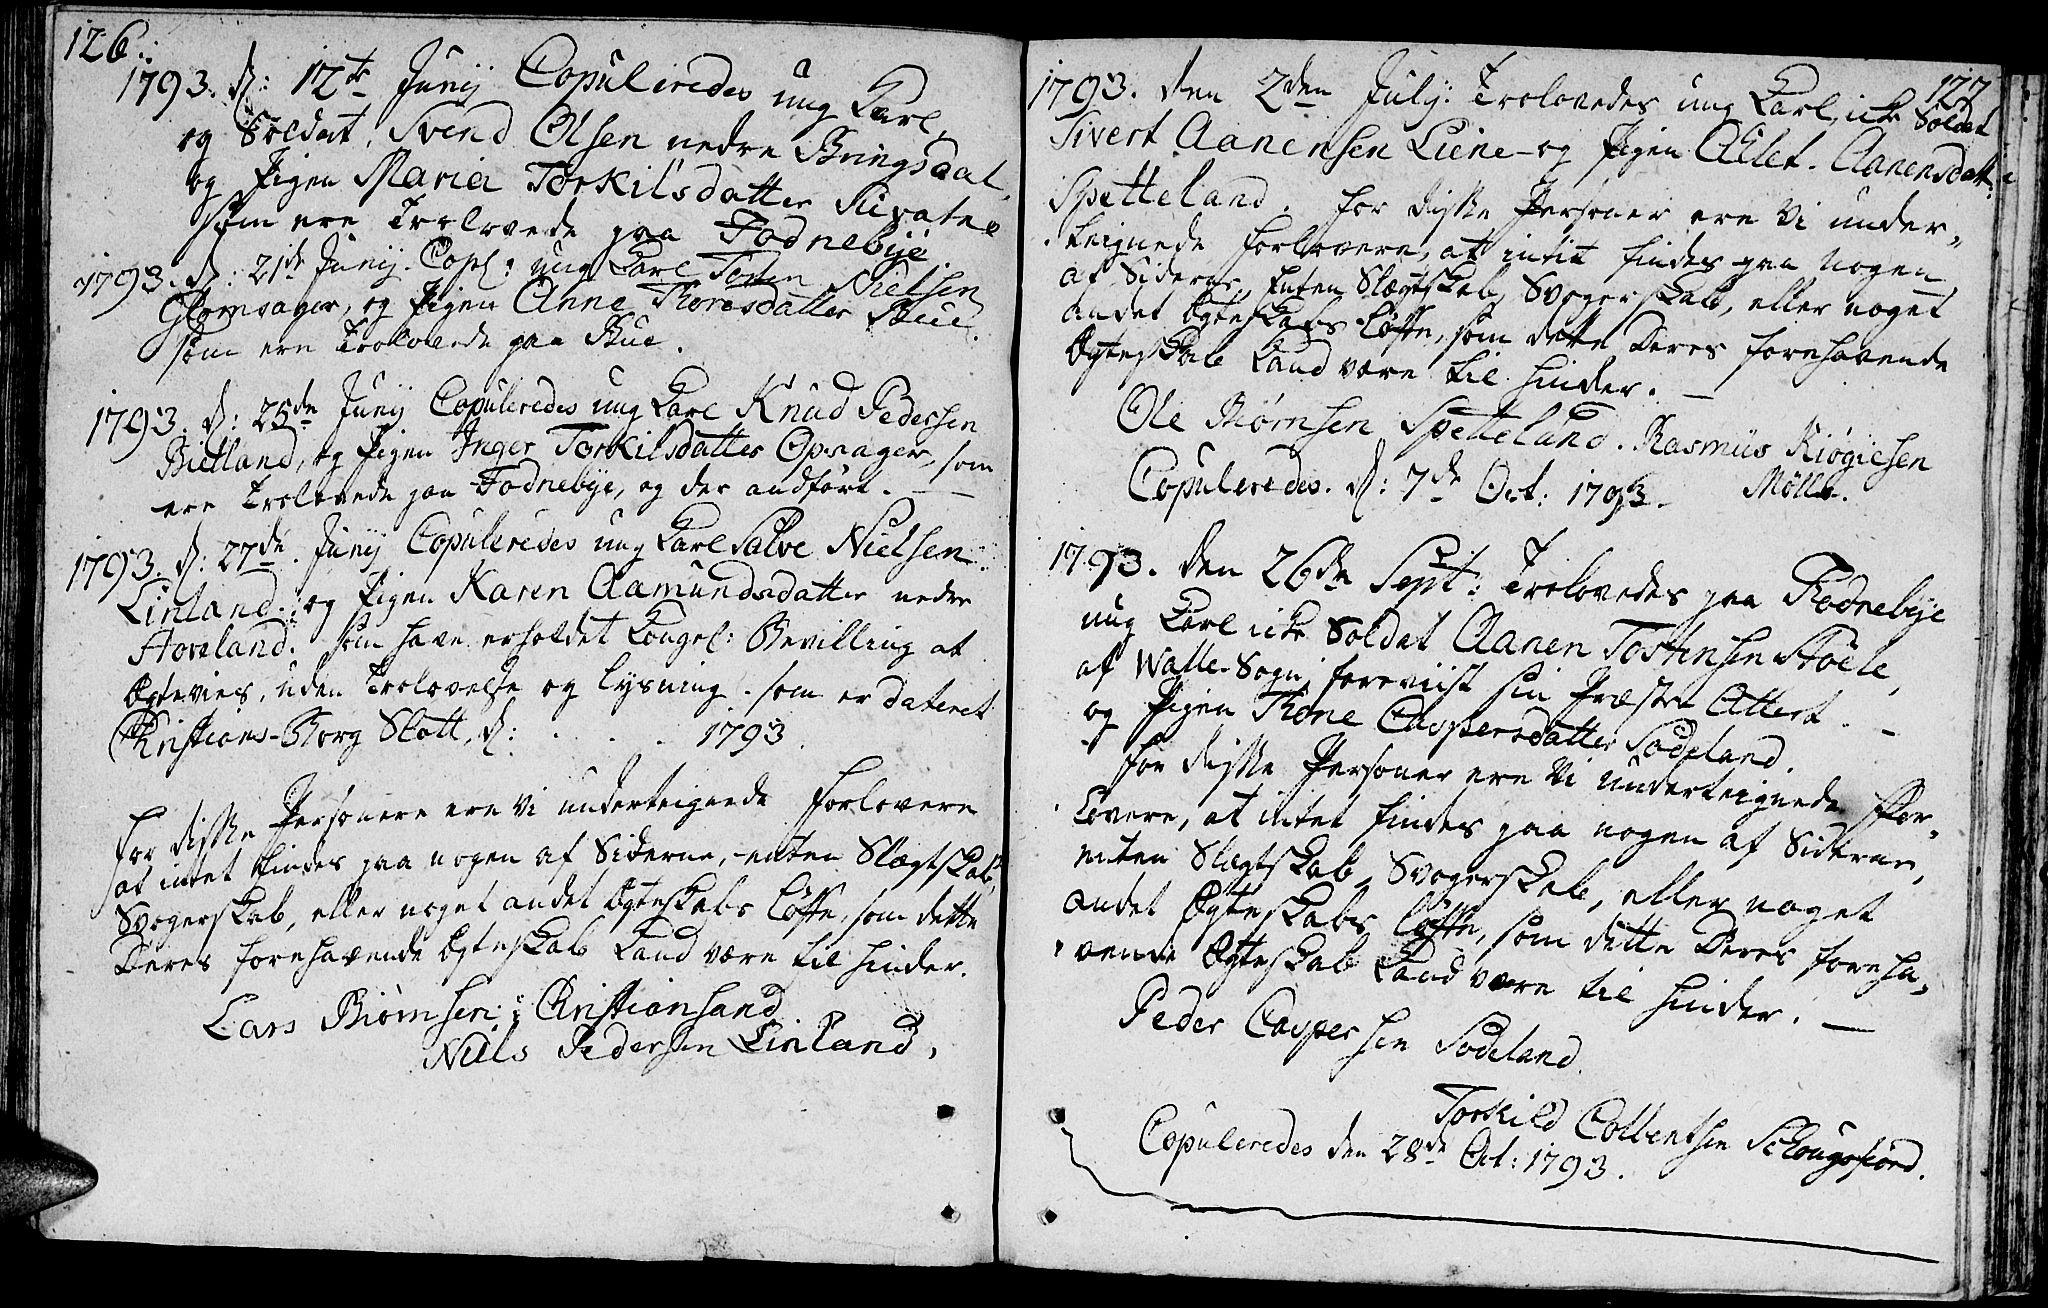 126.
1793. d: 12te Junij Copuleredes ung Karl
og Soldat, Svend Olsen nedre Bringsdal,
og Pigen Maria Torkilsdatter
som ere Trolovede paa Fodnebÿe.
1793. d: 21de Junij. Copl: ung Karl Nielsen
og Pigen Anne Thoresdatter Stue
som ere Trolovede paa Stue.
1793. d: 25de Junij Copuleredes ung Karl Knud Pedersen
Bietland, og Pigen Inger Torkilsdatter Opsager, som
ere Trolovede paa Fodnebÿe, og der andført. —
1793. d: 27de. Junij Copuleredes ung Karl Salve Nielsen
Linland. og Pigen Karen Aamundsdatter nedre
Hoveland. som have erholdet Kongel: Bevilling at
Ægtevies, uden Trolovelse og Lysning. som er dateret
Christians-Borg Slott, d: . . . . 1793.
For disse Personere ere Vi underteignede Forlovere
at intet findes paa nogen af Siderne, enten Slægtskab,
Svogerskab, eller noget andet Ægteskabs Løfte, som dette
Deres forehavende Ægteskab Kand være til hinder.
Lars Biørnsen i Christiansand
Niels Pedersen Linland.
127
1793. den 2den Julij: Trolovedes ung Karl, icke Soldat
Sivert Aanensen Liene og Pigen Allet Aanensdatter
Spetteland. For disse Personer ere Vi under-
teignede Forlovere, at intet findes paa nogen
af Siderne, Enten Slægtskab, Svogerskab, eller noget
andet Ægteskabs Løfte, som dette Deres forehavende
Ægteskab Kand være til hinder. —
Ole Biørnsen Spetteland. Rasmus Kiøgiesen
Copuleredes. d: 7de Oct: 1793. Mølle.
1793. den 26de Sept: Trolovedes paa Fodnebÿe
ung Karl icke Soldat Aanen Tostensen Støele,
af Walle-Sogn, foreviist sin Præstes Attest —
og Pigen Thone Caspersdatter Sodeland.
For disse Personer ere Vi underteignede For-
lovere, at intet findes paa nogen af Siderne,
enten Slægtskab, Svogerskab, eller noget
andet Ægteskabs Løfte, som dette Deres foreha-
vende Ægteskab Kand være til hinder. —
Peder Caspersen Sodeland.
Torkild Colbentsen
Copuleredes den 28de Oct: 1793.